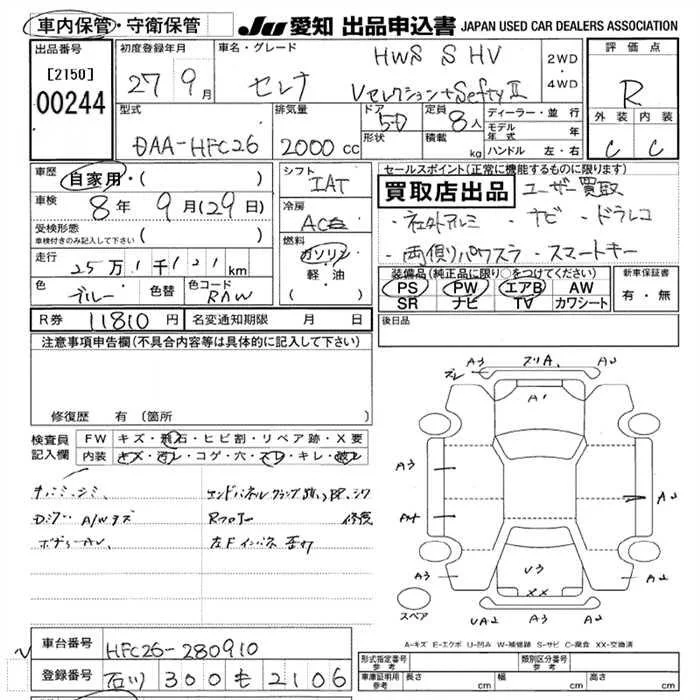 車内保管・守衛保管 JU 愛知 出品申込書 JAPAN USED CAR DEALERS ASSOCIATION
出品番号 [2150] 00244
初度登録年月 27 9月
車名・グレード セレナ HWS S HV Vセレクション+SeftyⅡ
2WD・4WD
評価点 R
外装 C 内装 C
型式 DAA-HFC26
排気量 2000cc
ドア 5D 形状
定員 8人 積載 kg
ディーラー・並行
モデル年式 年
ハンドル 左・右
車歴 自家用・( )
車検 8年 9月(29日)
受検形態 車検付きのみ記入して下さい ( )
走行 25万1千121km
色 ブルー 色替 色コード RAW
シフト IAT
冷房 AC
燃料 ガソリン 軽油 ( )
セールスポイント(正常に機能するものに限ります)
買取店出品 ユーザー買取
・社外アルミ ・ナビ ・ドラレコ
・両側パワスラ ・スマートキー
装備品(純正品に限り○をつけてください)
PS PW エアB AW
SR ナビ TV カワシート
新車保証書 有・無
R券 11810円 名変通知期限 月 日
後日品
注意事項申告欄(不具合内容等は具体的に記入して下さい)
修復歴 有(箇所
検査員記入欄 FW キズ・飛石・ヒビ割・リペア跡・X要
内装 キズ・汚レ・コゲ・穴・スレ・キレ・破レ
A/Wキズ
修復
A3 スリA. A2
ズレ
A1
A3
A2
A3 V3 XX A2
UA2 A3 A2
スペア
A-キズ E-エクボ U-凹み W-補修跡 S-サビ C-腐食 XX-交換済
車台番号 HFC26-280910
登録番号 石川 300 も 2106
形式指定番号 参考 類別区分番号 参考
車庫証明用 参考 長さ cm 幅 cm 高さ cm